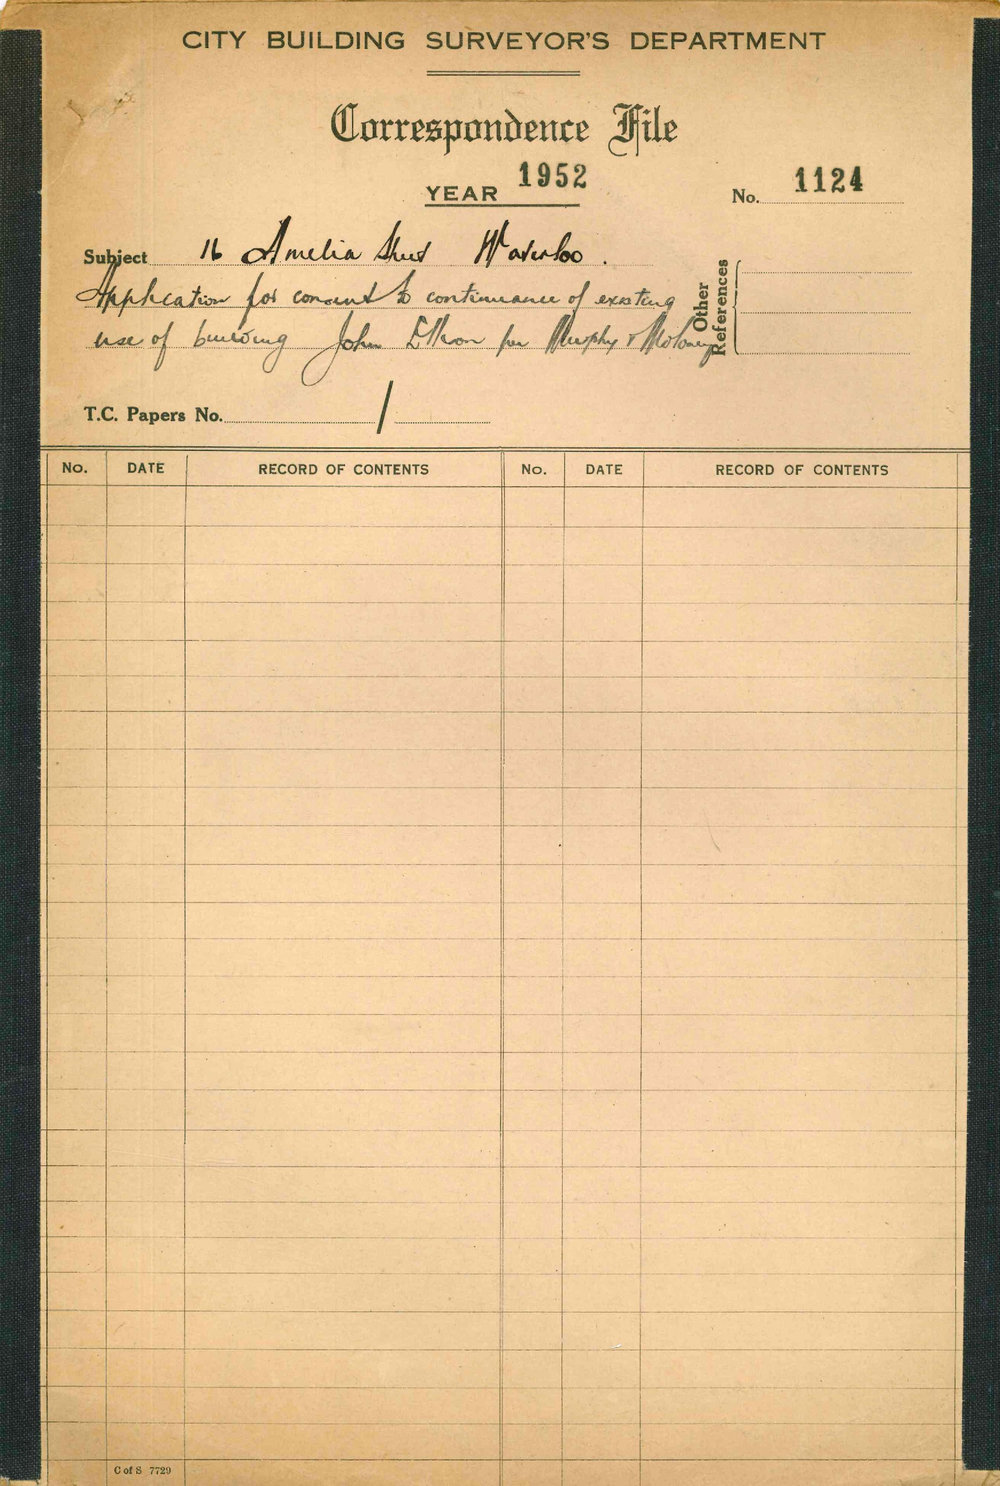 CITY BUILDING SURVEYOR'S DEPARTMENT
Correspondence File
YEAR 1952
No. 1124
Subject 16 Amelia Street Waterloo.
Application for consent to continuance of existing
use of building John per Murphy & Moloney
Other References
T.C. Papers No. /
No. DATE RECORD OF CONTENTS No. DATE RECORD OF CONTENTS
C of S 7729